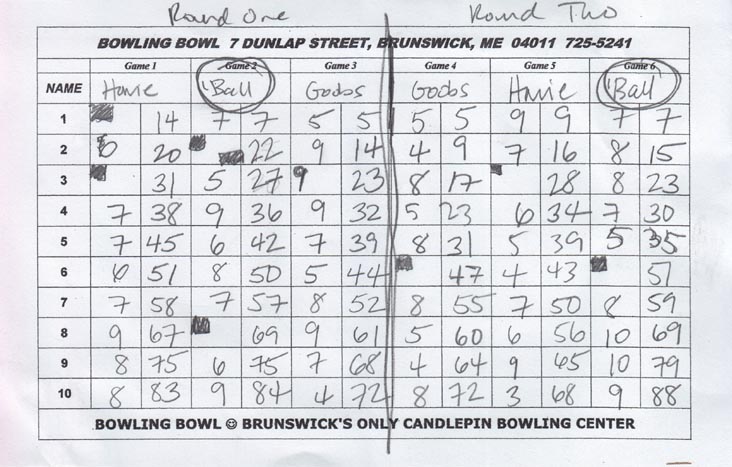 Round One Round Two
BOWLING BOWL 7 DUNLAP STREET, BRUNSWICK, ME 04011 725-5241
Game 1 Game 2 Game 3 Game 4 Game 5 Game 6
NAME Howie 'Ball Godbs Godbs Howie 'Ball
1 14 7 7 5 5 5 5 9 9 7 7
2 6 20 22 9 14 4 9 7 16 8 15
3 31 5 27 9 23 8 17 28 8 23
4 7 38 9 36 9 32 5 23 6 34 7 30
5 7 45 6 42 7 39 8 31 5 39 5 35
6 6 51 8 50 5 44 47 4 43 51
7 7 58 7 57 8 52 8 55 7 50 8 59
8 9 67 69 9 61 5 60 6 56 10 69
9 8 75 6 75 7 68 4 64 9 65 10 79
10 8 83 9 84 4 72 8 72 3 68 9 88
BOWLING BOWL ☺ BRUNSWICK'S ONLY CANDLEPIN BOWLING CENTER